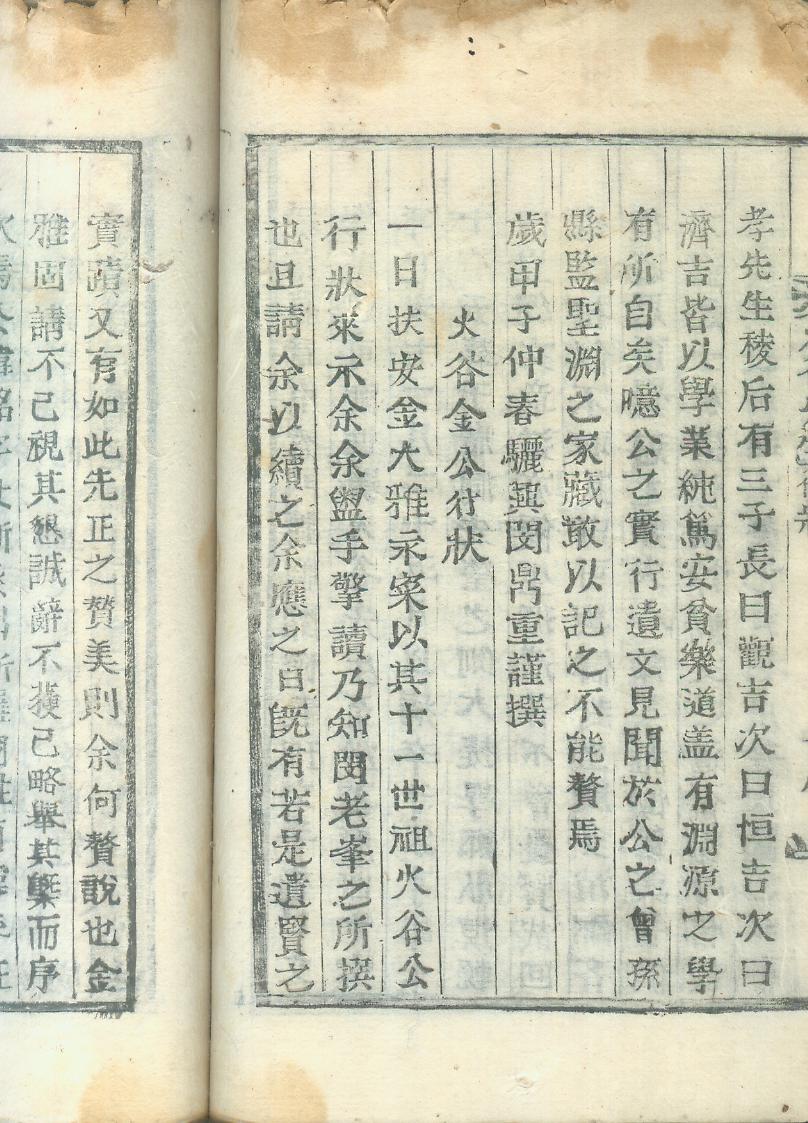 孝先生稜后有三子長曰觀吉次曰恒吉次曰
濟吉皆以學業純篤安貧樂道盖有淵源之學
有所自矣噫公之實行遺文見聞於公之曾孫
縣監聖淵之家藏敢以記之不能贅焉
歲甲子仲春驪興閔鼎重謹撰
火谷金公行狀
一日扶安金大雅永寀以其十一世祖火谷公
行狀來示余余盥手擎讀乃知閔老峯之所撰
也且請余以續之余應之曰旣有若是遺賢之
實蹟又有如此先正之賛美則余何贅說也金
雅固請不已視其懇誠辭不獲已略舉其槩而序